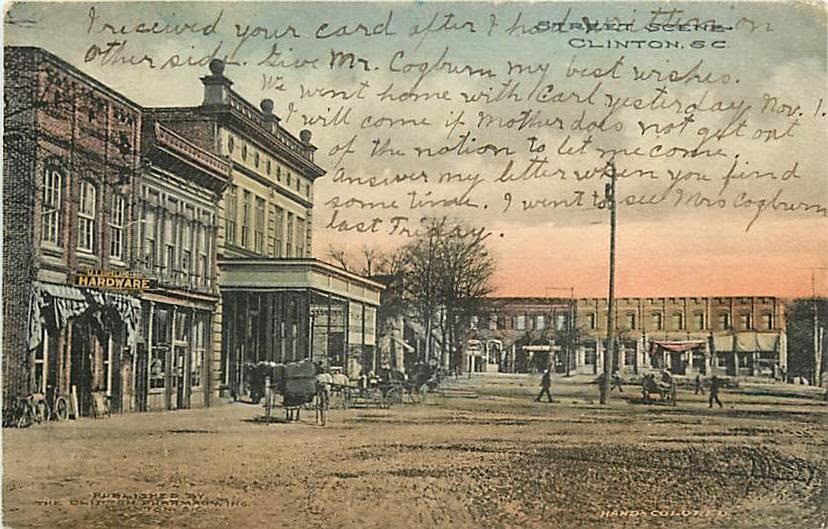 I received your card after I had written on
STREET SCENE
CLINTON, S.C.
other side. Give Mr. Cogburn my best wishes.
We went home with Carl yesterday Nov. 1.
I will come if Mother does not get out
of the notion to let me come.
Answer my letter when you find
some time. I went to see Mrs Cogburn
last Friday.
HARDWARE
PUBLISHED BY
THE CLINTON PHARMACY INC.
HAND-COLORED